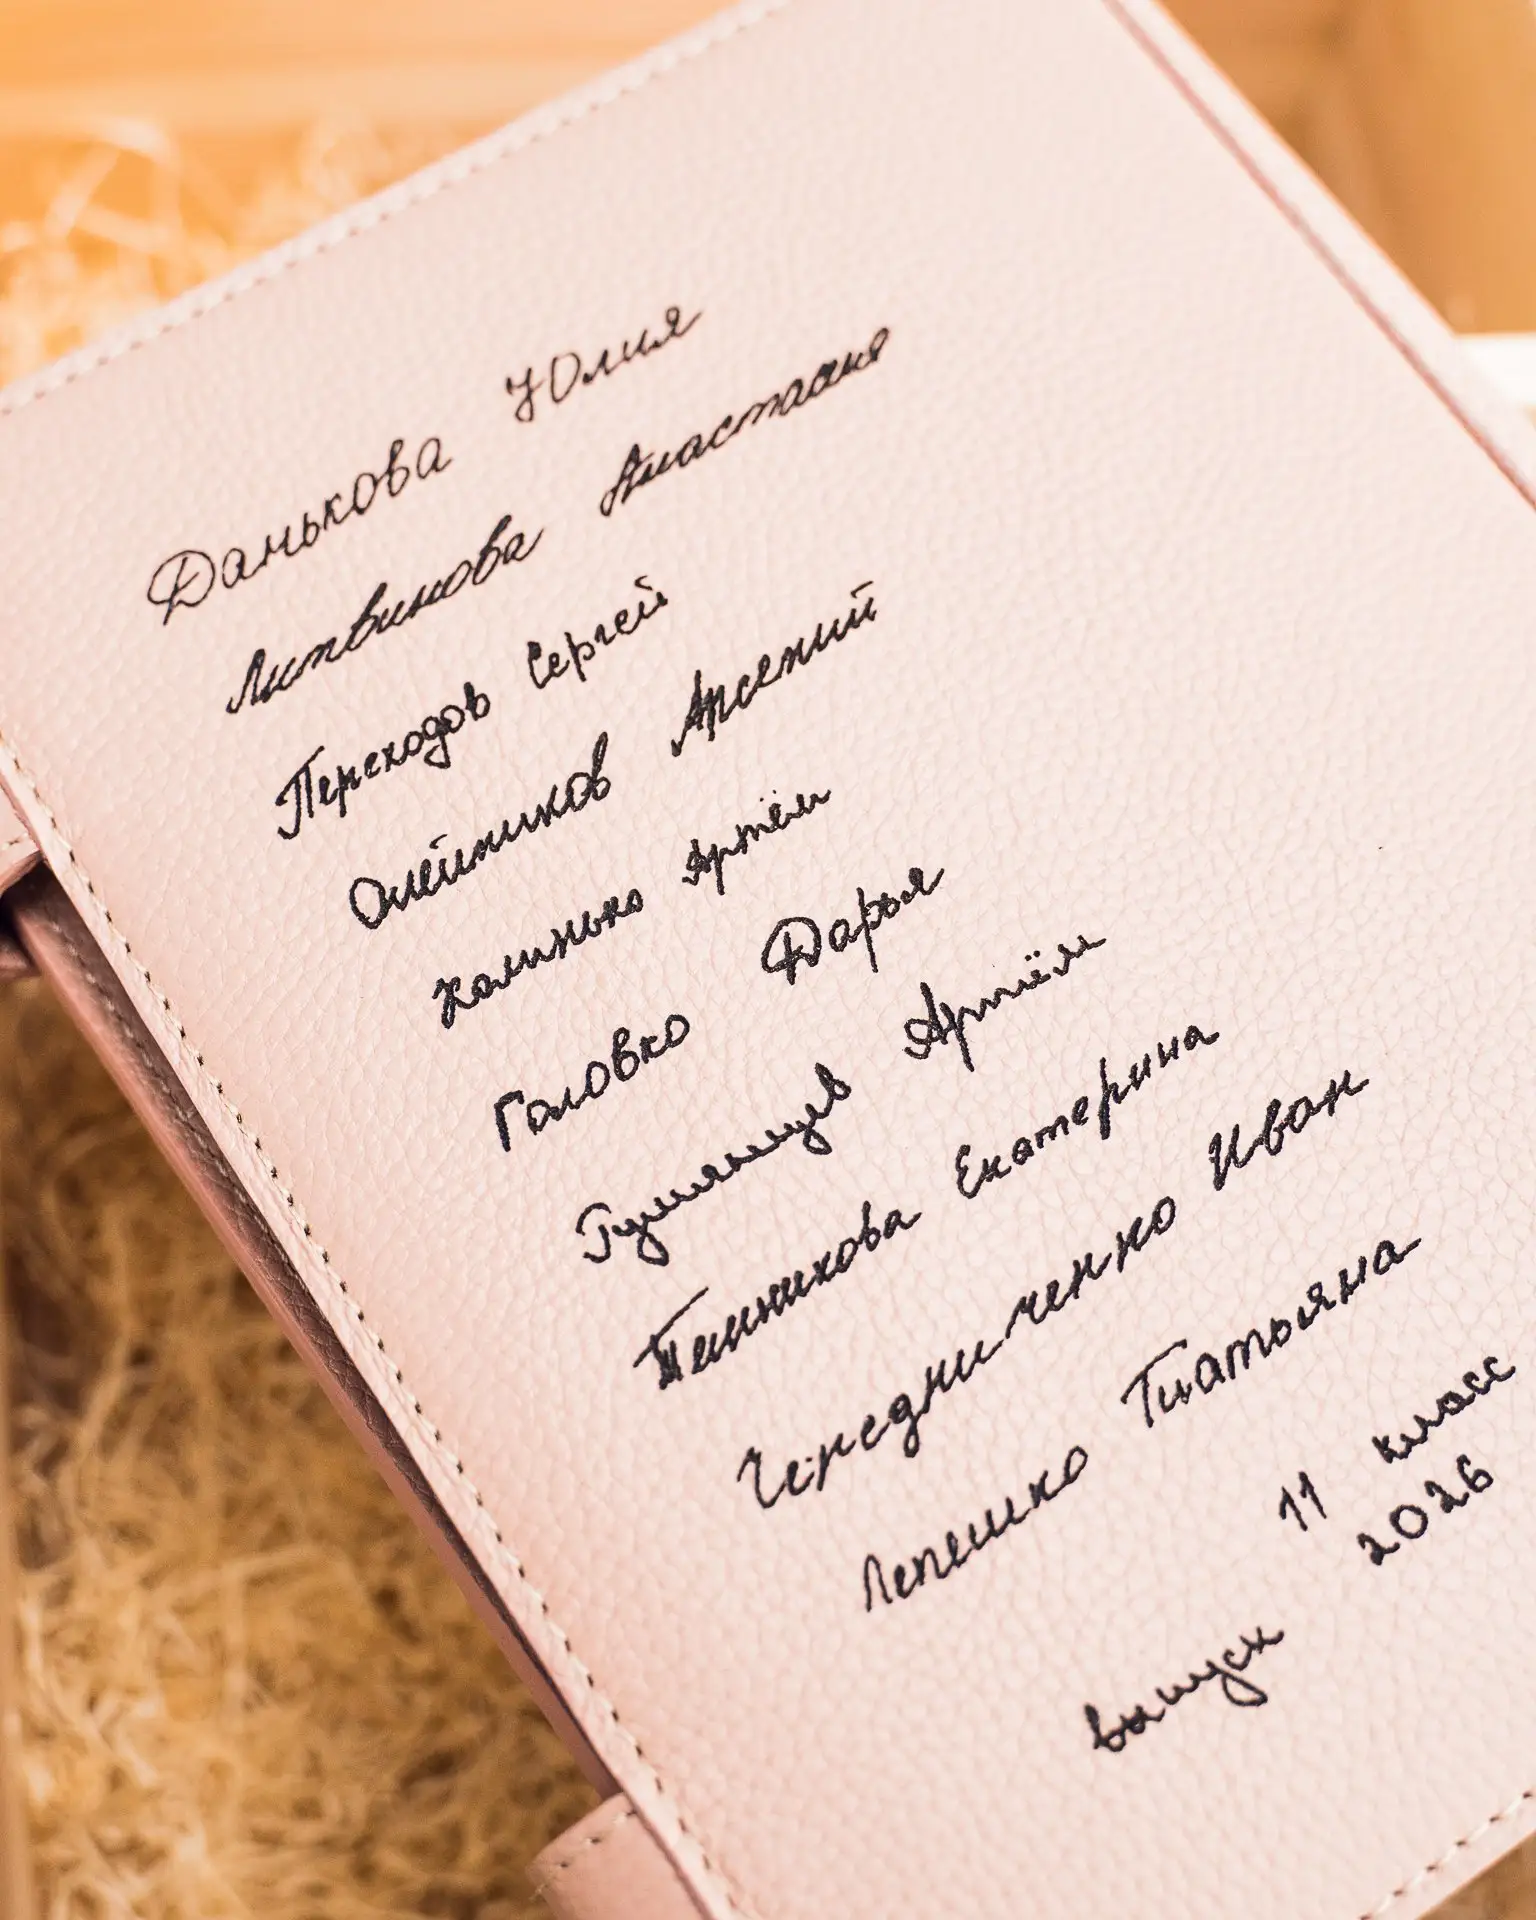 Данькова Юлия
Литвинова Анастасия
Переходов Сергей
Олейников Арсений
Калинько Артём
Головко Дарья
Румянцев Артём
Екатерина
Чередниченко Иван
Лепешко Татьяна
11 класс
выпуск 2026